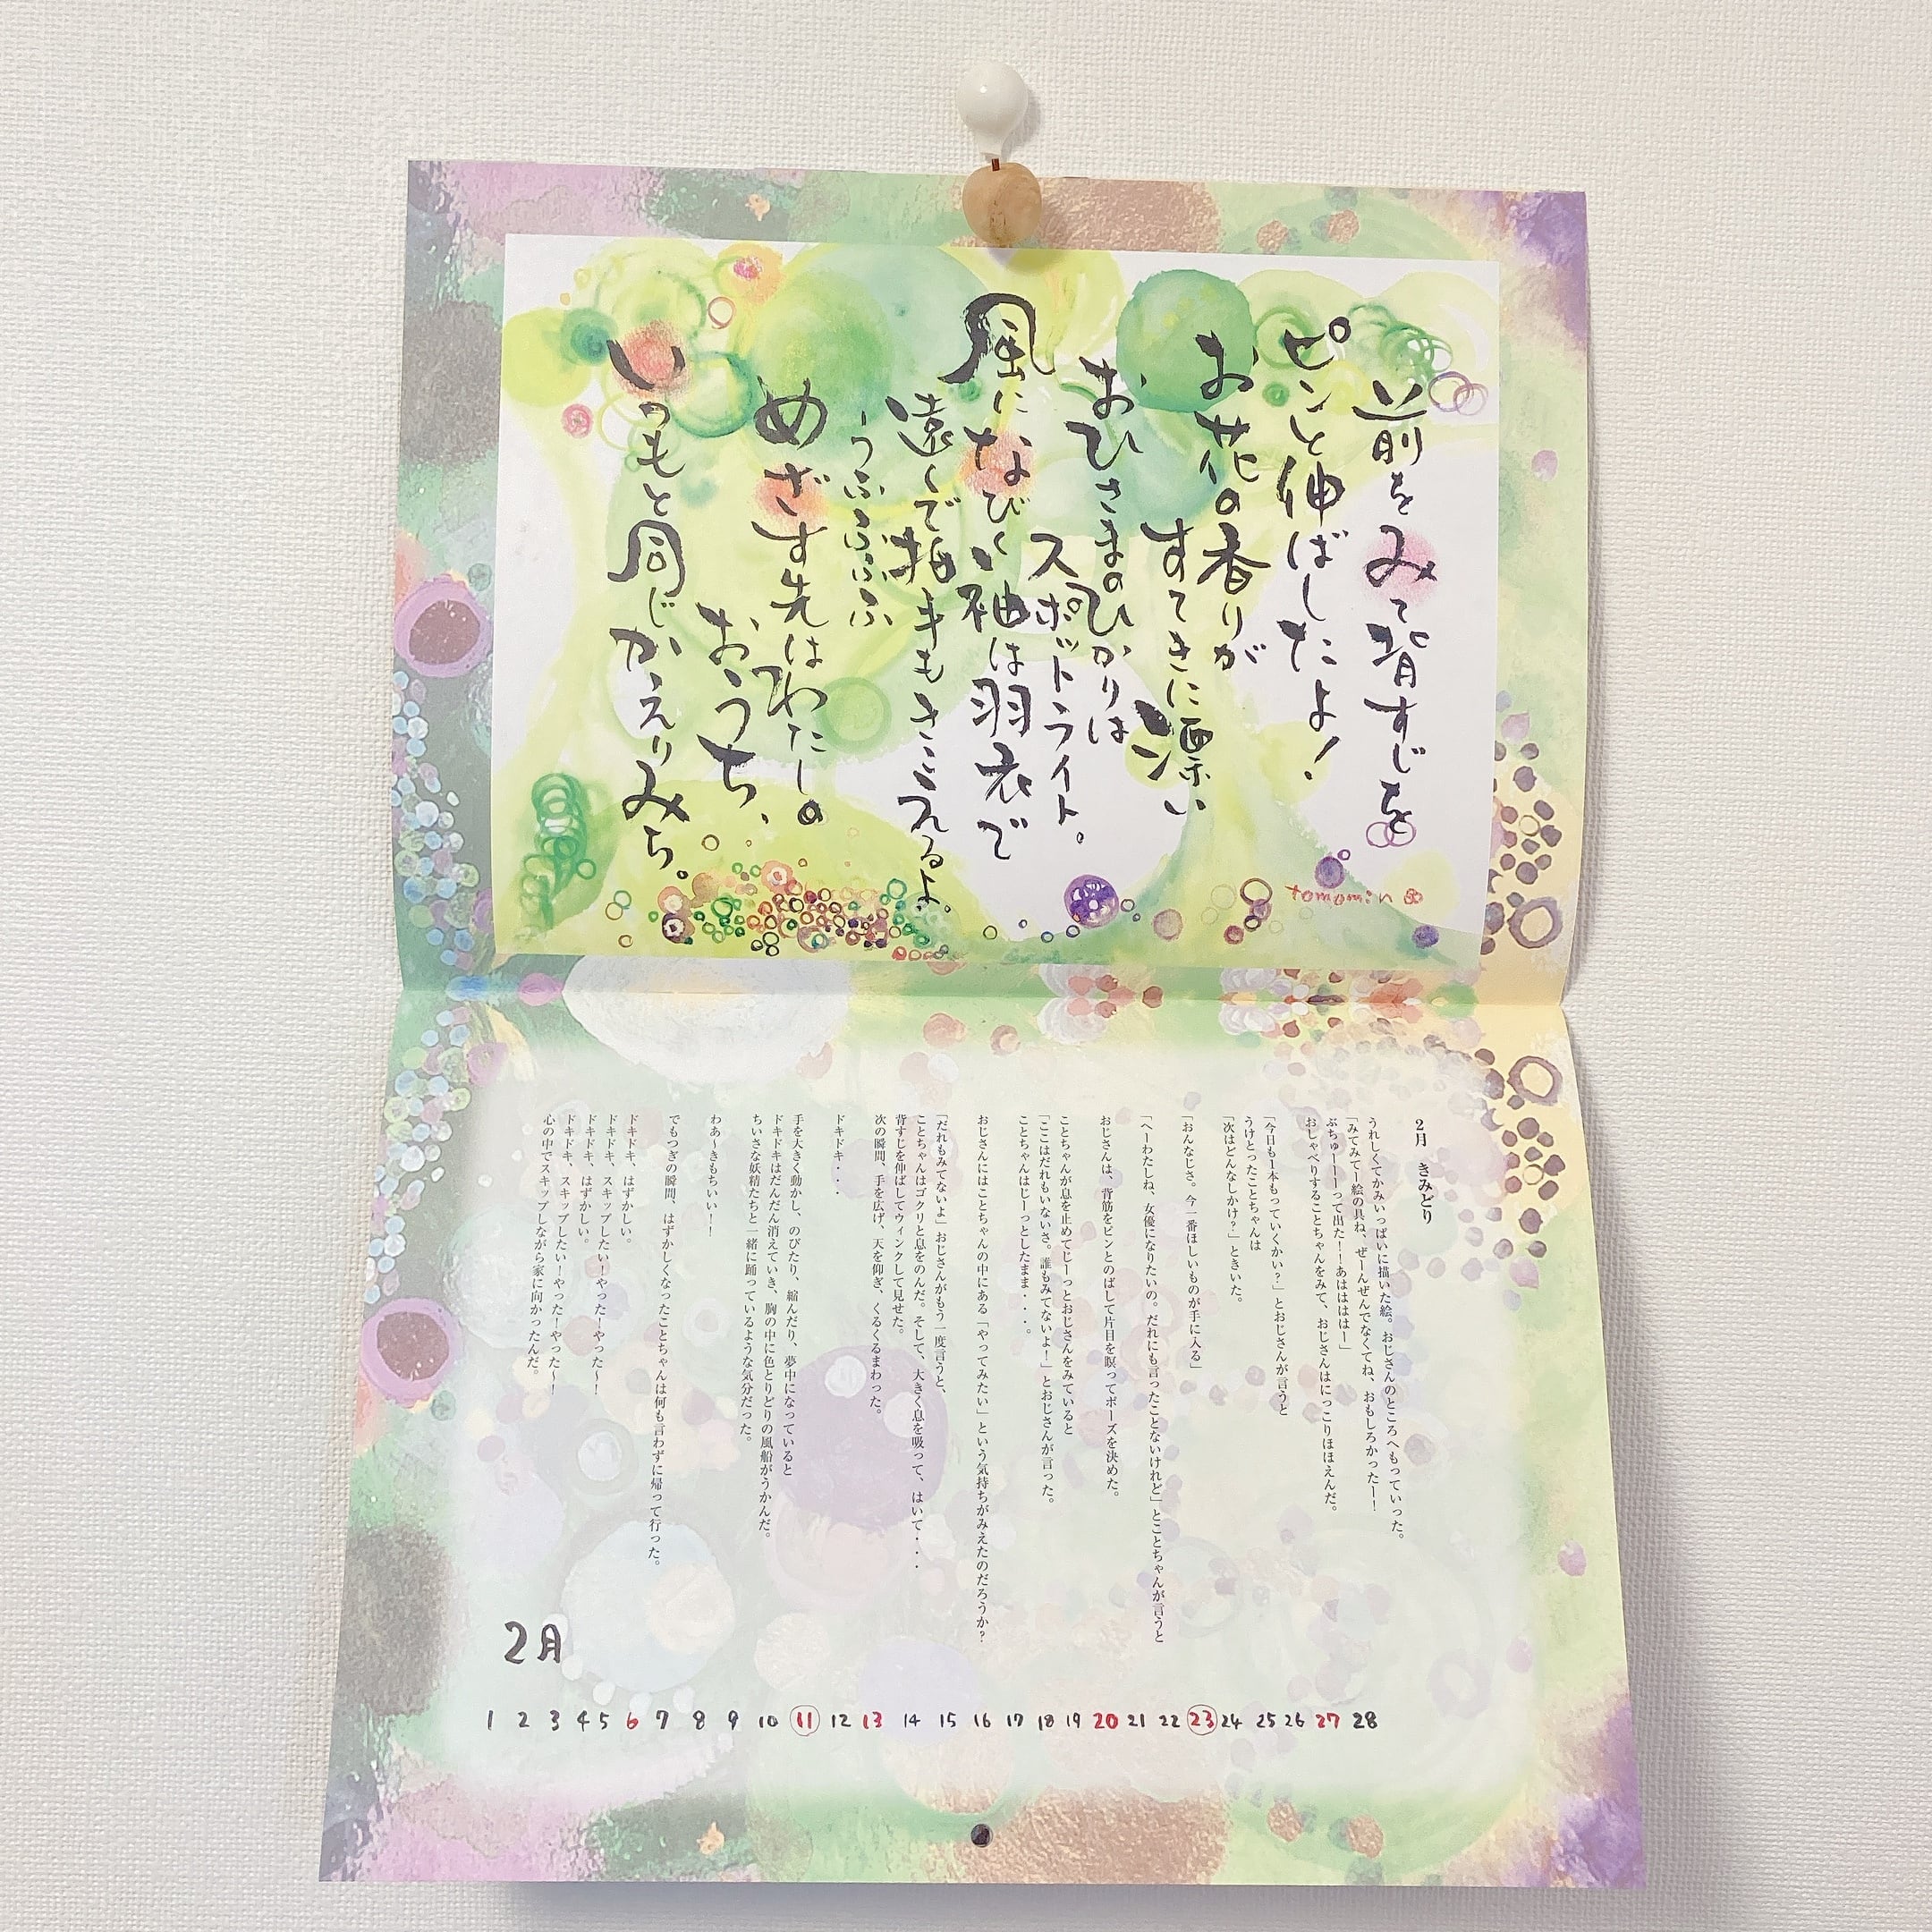 前をみて背すじを
ピンと伸ばしたよ!
お花の香りが
すてきに漂い
おひさまのひかりは
スポットライト。
風になびく袖は羽衣で
遠くで拍手もきこえるよ。
うふふふふふ
めざす先はわたし。
おうち、
いつもと同じかえりみち。
tomomin
2月 きみどり
うれしくてかみいっぱいに描いた絵。おじさんのところへもっていった。
「みてみてー絵の具ね、ぜーんぜんでなくてね、おもしろかったー!
ぶちゅーーーって出た!ーあはははは—」
おしゃべりすることちゃんをみて、おじさんはにっこりほほえんだ。
「今日も1本もっていくかい?」とおじさんが言うと
うけとったことちゃんは
「次はどんなしかけ?」ときいた。
「おんなじさ。今一番ほしいものが手に入る」
「へーわたしね、女優になりたいの。だれにも言ったことないけれど」とことちゃんが言うと
おじさんは、背筋をピンとのばして片目を瞑ってポーズを決めた。
ことちゃんが息を止めてじーっとおじさんをみていると
「ここはだれもいないさ。誰もみてないよ!」とおじさんが言った。
ことちゃんはじーっとしたまま・・・。
おじさんにはことちゃんの中にある「やってみたい」という気持ちがみえたのだろうか?
「だれもみてないよ」おじさんがもう一度言うと、
ことちゃんはゴクリと息をのんだ。そして、大きく息を吸って、はいて・・・・
背すじを伸ばしてウィンクして見せた。
次の瞬間、手を広げ、天を仰ぎ、くるくるまわった。
ドキドキ・・・
手を大きく動かし、のびたり、縮んだり、夢中になっていると
ドキドキはだんだん消えていき、胸の中に色とりどりの風船がうかんだ。
ちいさな妖精たちと一緒に踊っているような気分だった。
わあ〜きもちいい!!
でもつぎの瞬間、はずかしくなったことちゃんは何も言わずに帰って行った。
ドキドキ、はずかしい。
ドキドキ、スキップしたい!やった!やった〜!
ドキドキ、はずかしい。
ドキドキ、スキップしたい!やった!やった〜!
心の中でスキップしながら家に向かったんだ。
2月
1 2 3 4 5 6 7 8 9 10 11 12 13 14 15 16 17 18 19 20 21 22 23 24 25 26 27 28